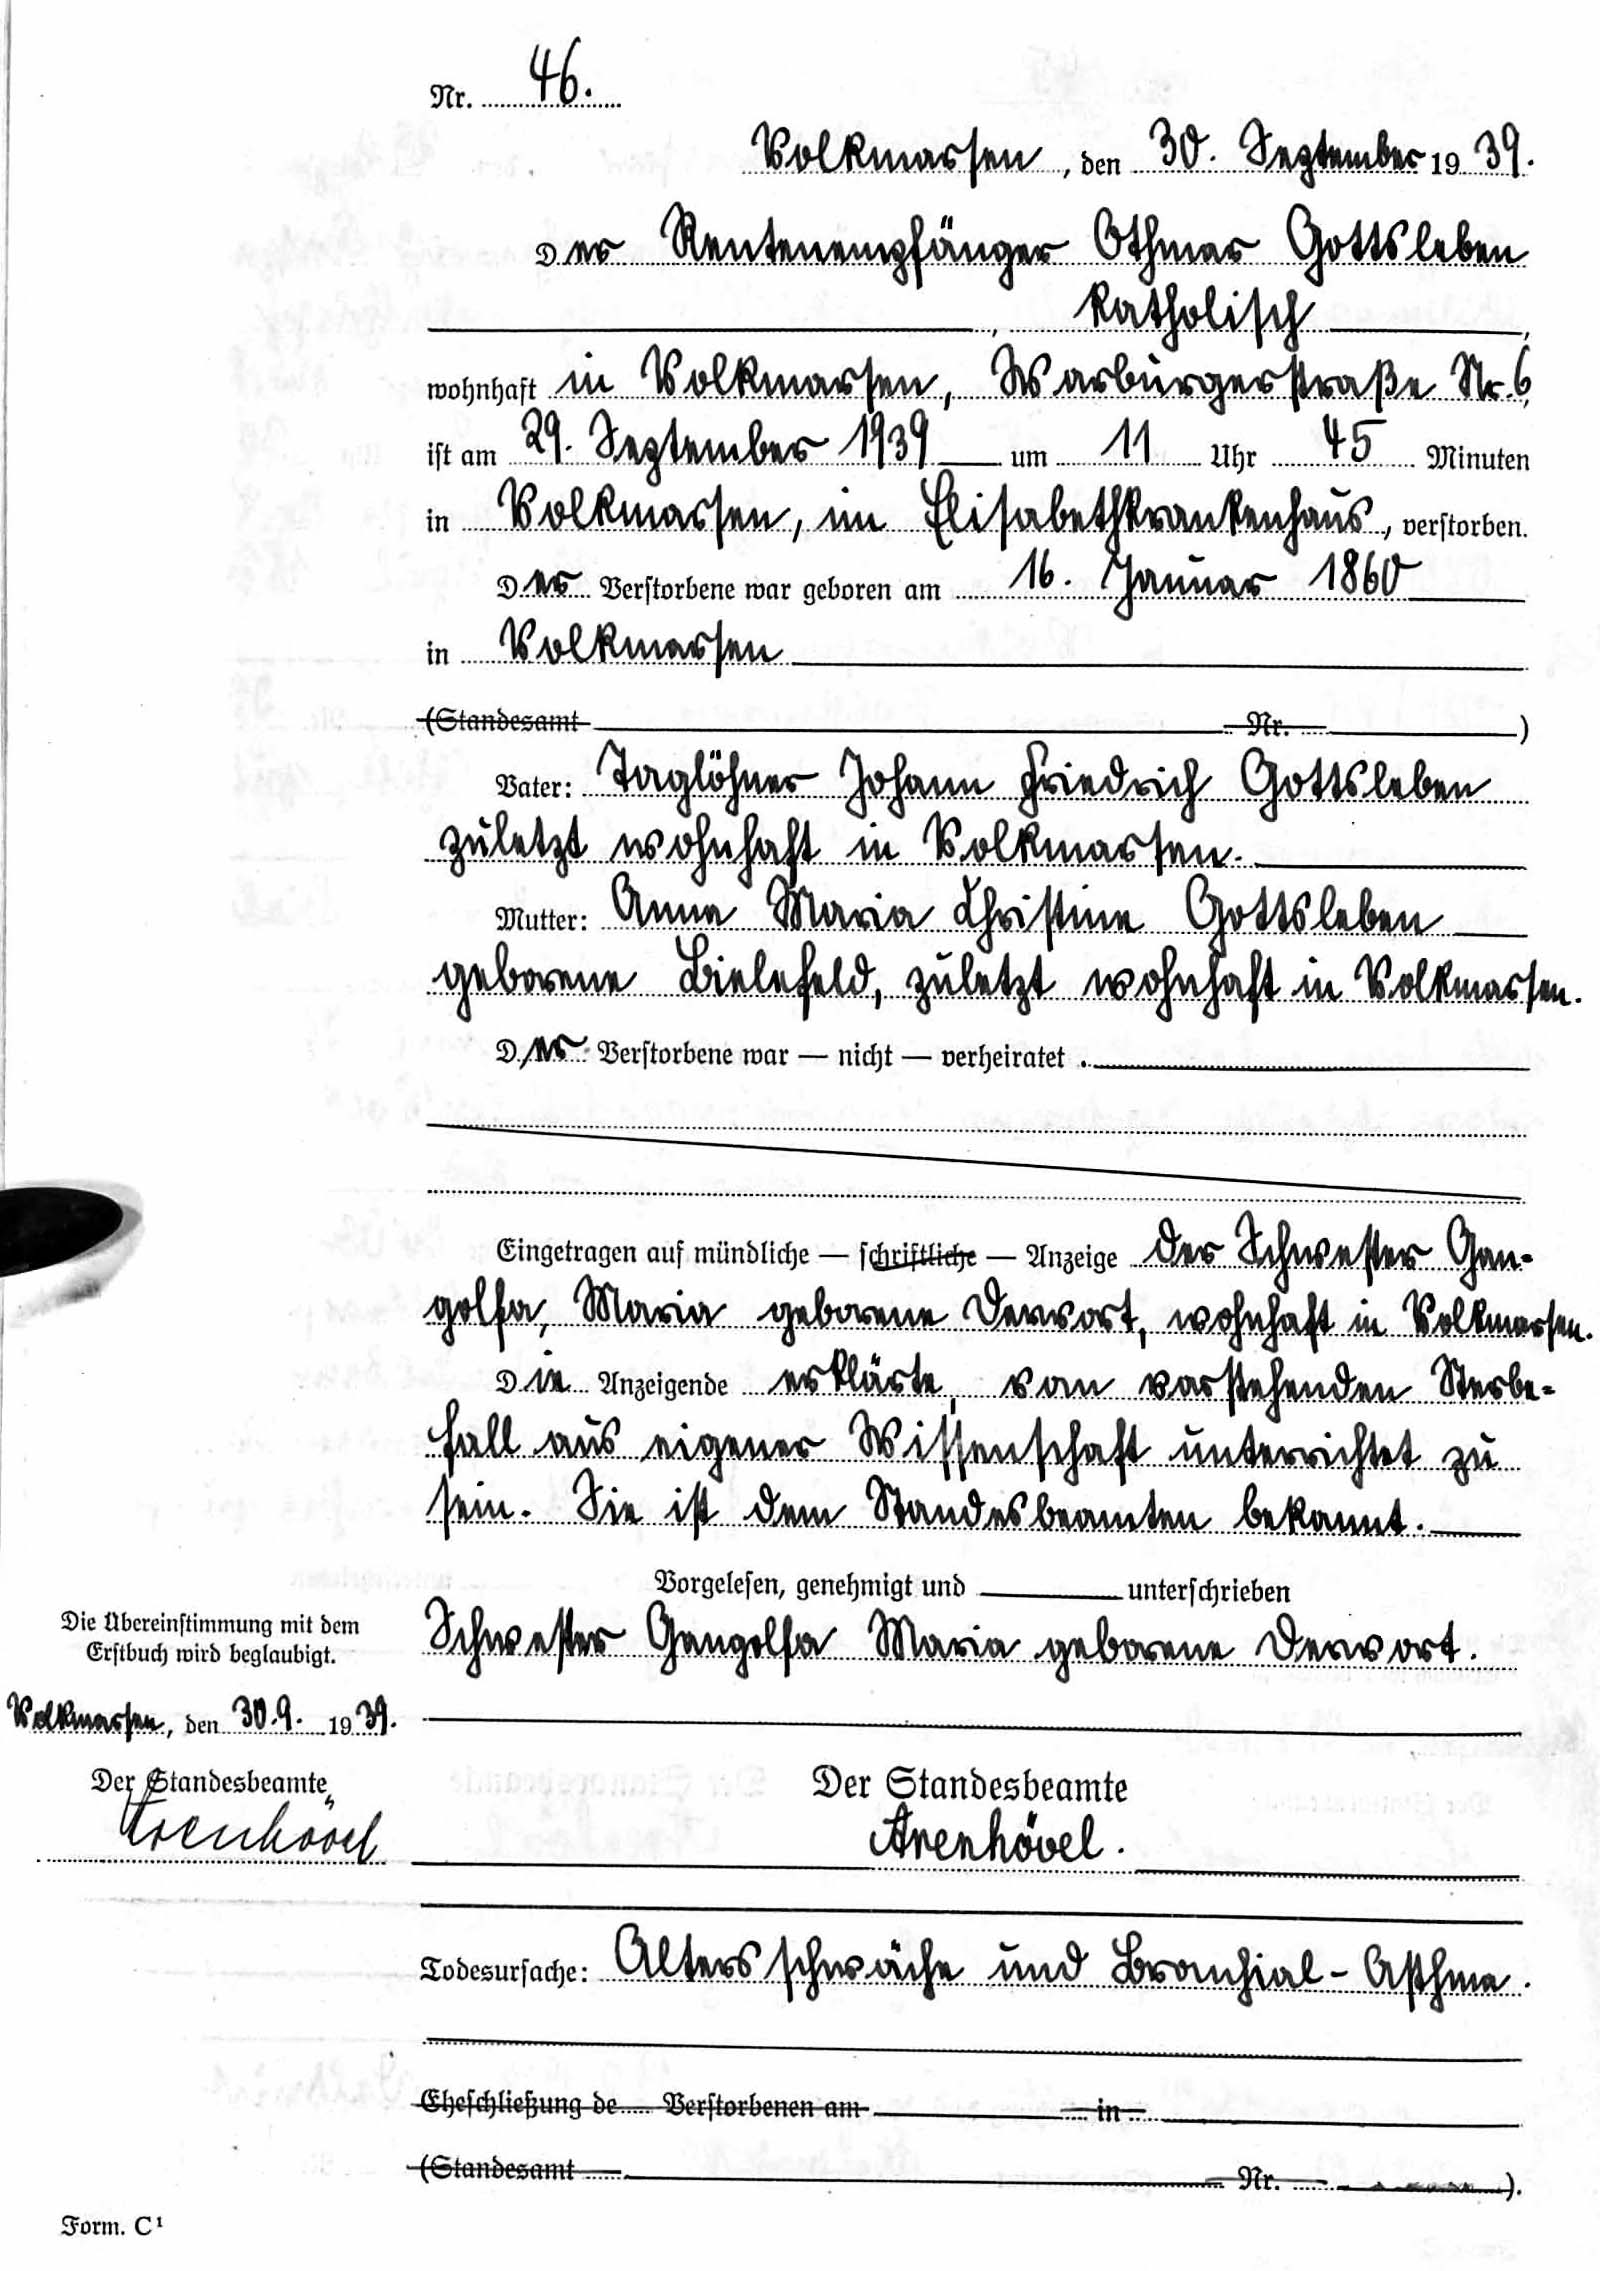 Nr. 46.
Volkmarsen, den 30. September 1939.
Der Rentenempfänger Othmar Gottsleben
, katholisch,
wohnhaft in Volkmarsen, Warburgerstraße Nr. 6,
ist am 29. September 1939 um 11 Uhr 45 Minuten
in Volkmarsen, im Elisabethkrankenhaus, verstorben.
Der Verstorbene war geboren am 16. Januar 1860
in Volkmarsen
(Standesamt Nr. )
Vater: Taglöhner Johann Friedrich Gottsleben
zuletzt wohnhaft in Volkmarsen.
Mutter: Anna Maria Christine Gottsleben
geborene Bielefeld, zuletzt wohnhaft in Volkmarsen.
Der Verstorbene war — nicht — verheiratet.
Eingetragen auf mündliche — schriftliche — Anzeige der Schwester Gan-
golfa, Maria geborene Derwort, wohnhaft in Volkmarsen.
Die Anzeigende erklärte, von vorstehenden Sterbe-
fall aus eigener Wissenschaft unterrichtet zu
sein. Sie ist dem Standesbeamten bekannt.
Vorgelesen, genehmigt und unterschrieben
Schwester Gangolfa Maria geborene Derwort.
Die Übereinstimmung mit dem
Erstbuch wird beglaubigt.
Volkmarsen, den 30.9. 1939.
Der Standesbeamte
Arenhövel
Der Standesbeamte
Arenhövel.
Todesursache: Altersschwäche und Bronchial-Asthma.
Eheschließung de Verstorbenen am in
(Standesamt Nr. ).
Form. C¹